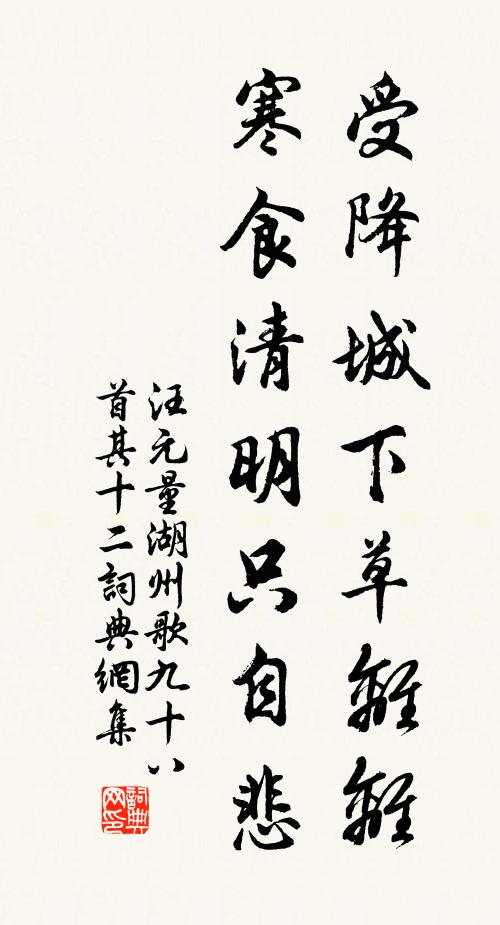 受降城下草離離
寒食清明只自悲
汪元量湖州歌九十八
首其十二詞典網集
詞典
网印